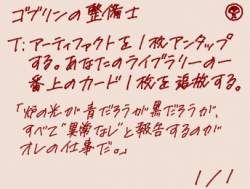 ゴブリンの整備士
T:アーティファクトを1枚アンタップ
する。あなたのライブラリーの一
番上のカード1枚を追放する。
「炉の光が青だろうが黒だろうが、
すべて“異常なし”と報告するのが
オレの仕事だ。」
1/1